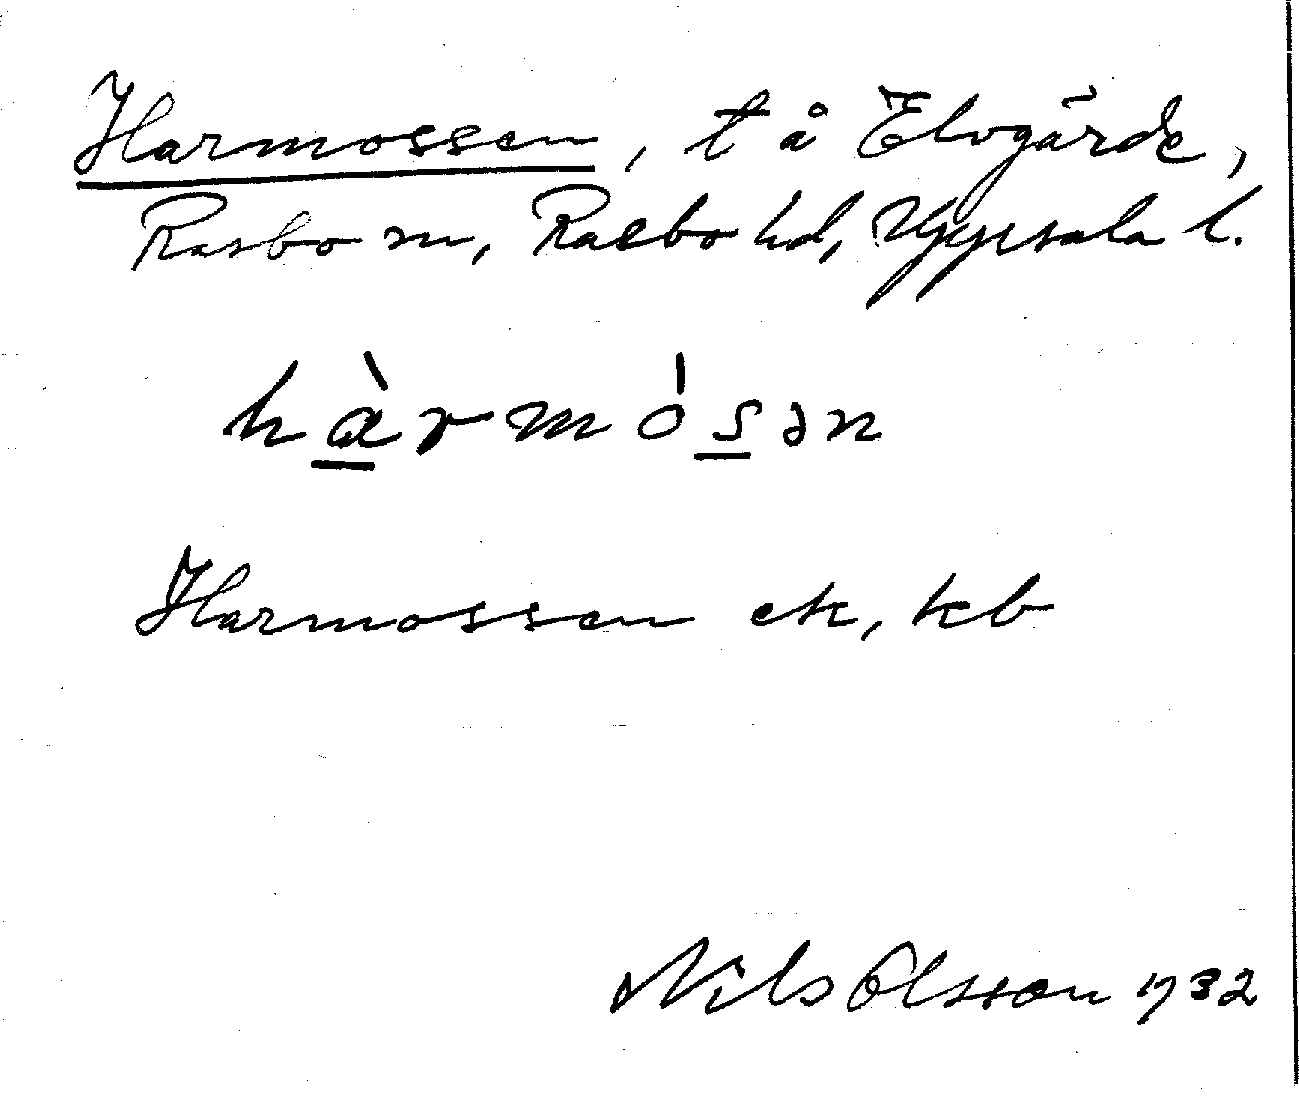 Harmossen, t å Elvgärde,
Rasbo sn, Rasbo hd, Uppsala l.
hàrmósən
Harmossen ek, kb
Nils Olsson 1932